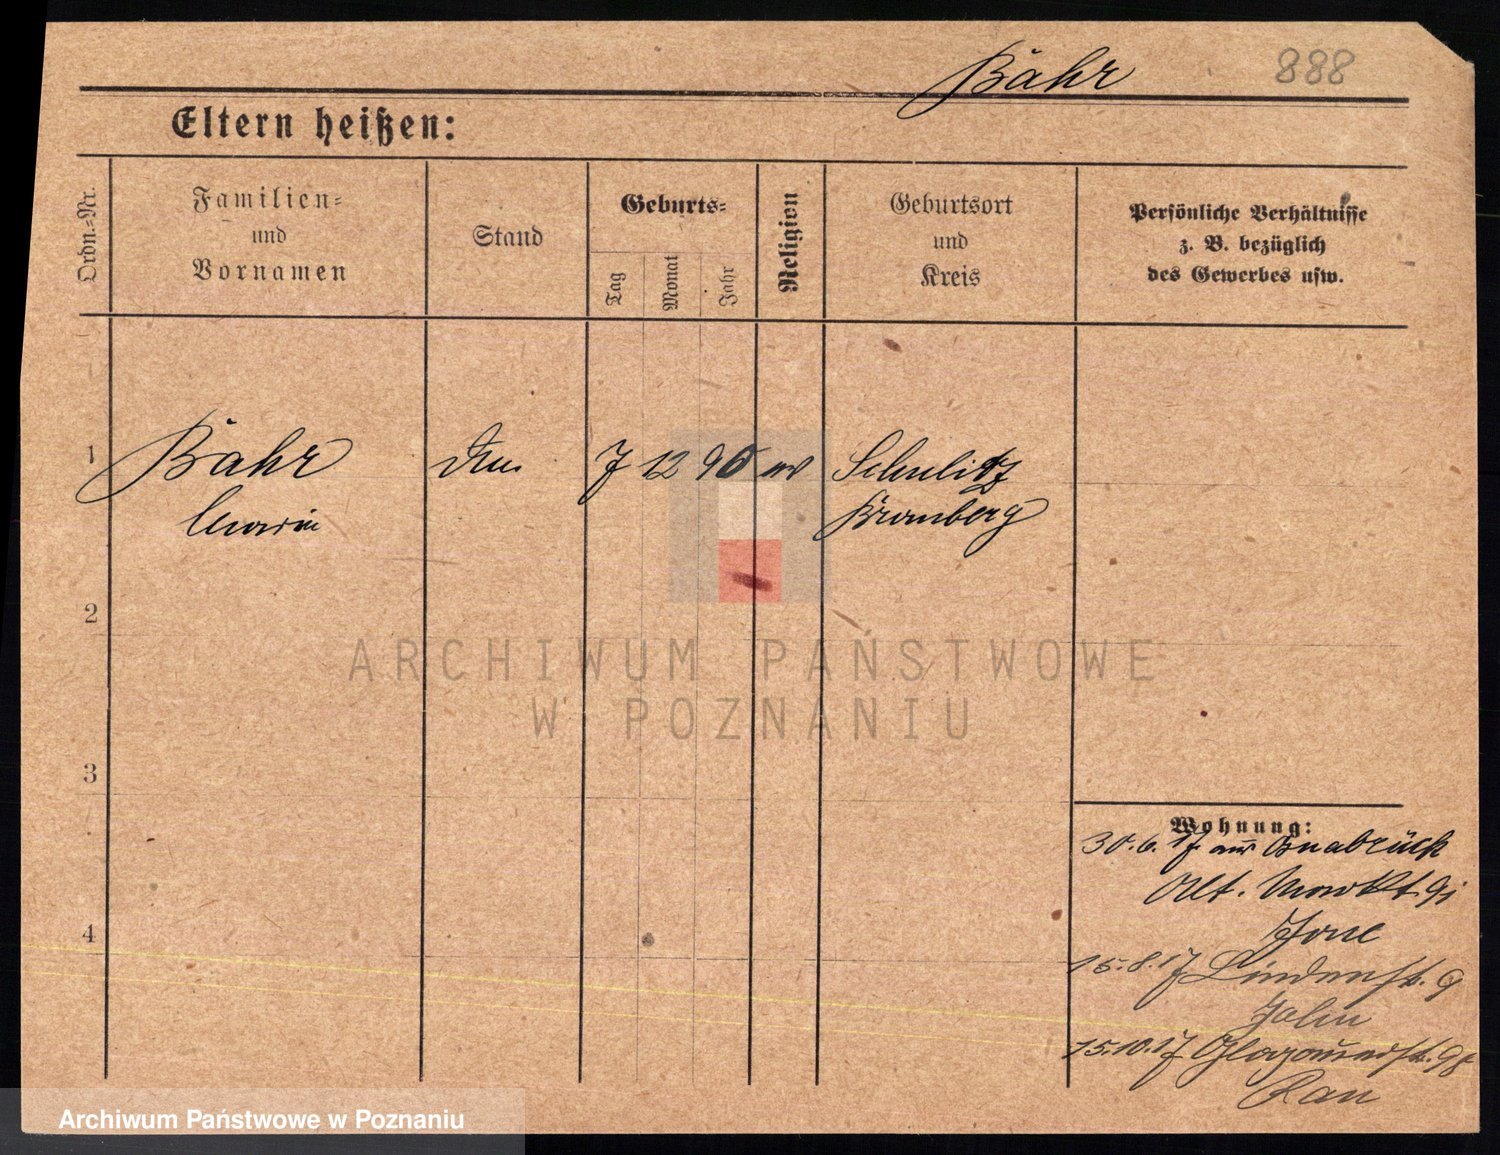 Bähr 888
Eltern heißen:
Ordn.-Nr.
Familien-
und
Vornamen
Stand
Geburts-
Tag
Monat
Jahr
Religion
Geburtsort
und
Kreis
Persönliche Verhältnisse
z. B. bezüglich
des Gewerbes usw.
1 Bähr 7 12 90 ev Schulitz
Maria Bromberg
2
3
4
Wohnung:
30.6.17 aus Osnabrück
Alt. Markt 91
15.8.17 Lindenst. 9
15.10.17
Rau
ARCHIWUM PAŃSTWOWE
W POZNANIU
Archiwum Państwowe w Poznaniu